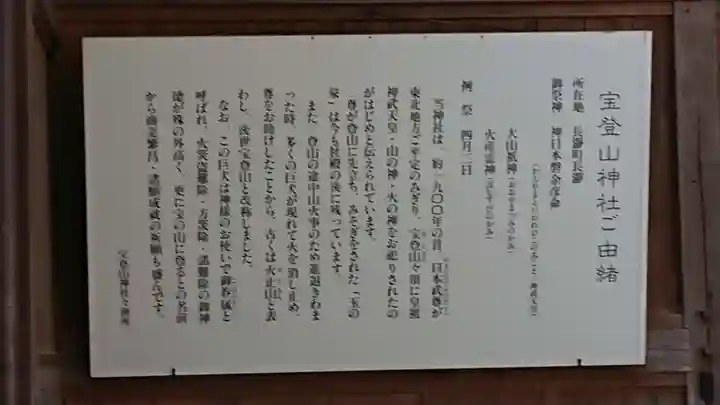 宝登山神社ご由緒
所在地 長瀞町長瀞
御祭神 神日本磐余彦尊
(かんやまといわれひこのみこと・神武天皇)
大山祇神(おおやまづみのかみ)
火産霊神(ほむすびのかみ)
例 祭 四月三日
当神社は、約一九〇〇年の昔、日本武尊が
東北地方ご平定のみぎり、宝登山々頂に皇祖
神武天皇・山の神・火の神をお祀りされたの
がはじめと伝えられています。
尊が登山に先立ち、みそぎをされた「玉の
泉」は今も社殿の後に残っています。
また、登山の途中山火事のため進退きわま
った時、多くの巨犬が現れて火を消し止め、
尊をお助けしたことから、古くは火止山と表
わし、後世宝登山と改称しました。
なお、この巨犬は神様のお使いで御眷属と
呼ばれ、火災盗難除・方災除・諸難除の御神
徳が殊の外高く、更に宝の山に登るとの名前
から商売繁昌・諸願成就の祈願も盛んです。
宝登山神社々務所